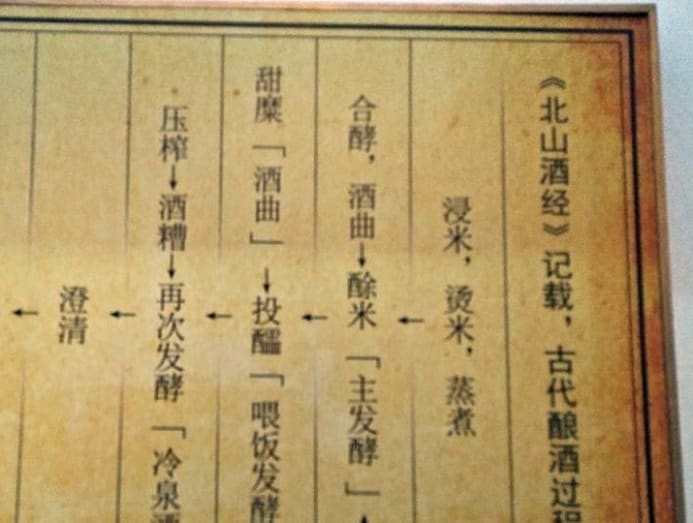 《北山酒经》记载，古代酿酒过程
浸米，烫米，蒸煮
←
合酵，酒曲→酴米「主发酵」
←
甜糜「酒曲」→投醹「喂饭发酵
←
压榨→酒糟→再次发酵「冷泉酒
←
澄清
←